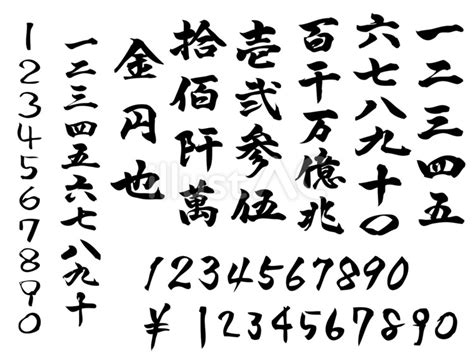 一二三四五
六七八九十〇
百千万億兆
壱弐参伍
拾佰阡萬
金円也
一二三四五六七八九十
1234567890
1234567890
¥1234567890